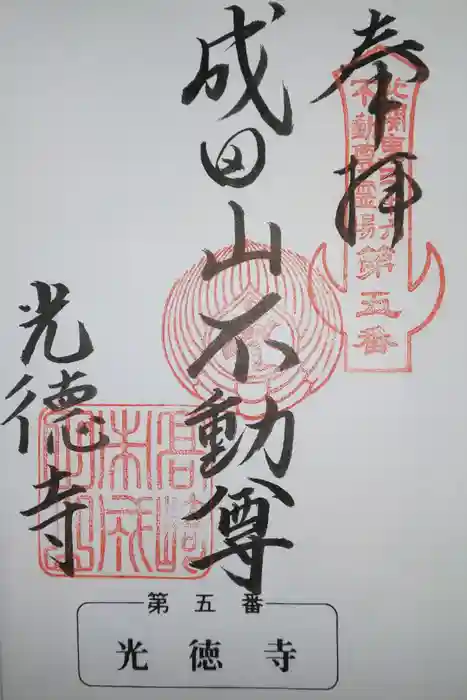 奉拝
北関東三十六
不動尊霊場
第五番
成田山不動尊
光徳寺
第五番
光徳寺